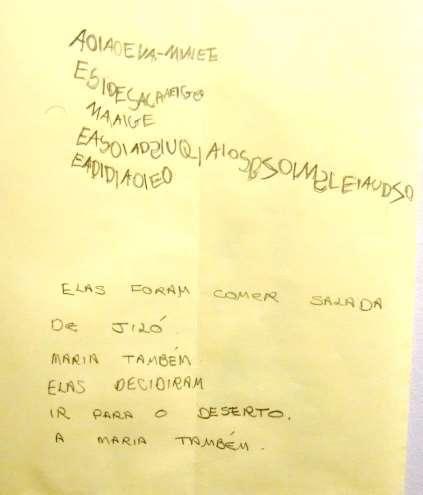 AOIAOEVA-MVAIEE
ESIDESACAAEIGO
MAAIGE
EADIDIAOIEO
ELAS FORAM COMER SALADA
DE JILÓ.
MARIA TAMBÉM.
ELAS DECIDIRAM
IR PARA O DESERTO.
A MARIA TAMBÉM.